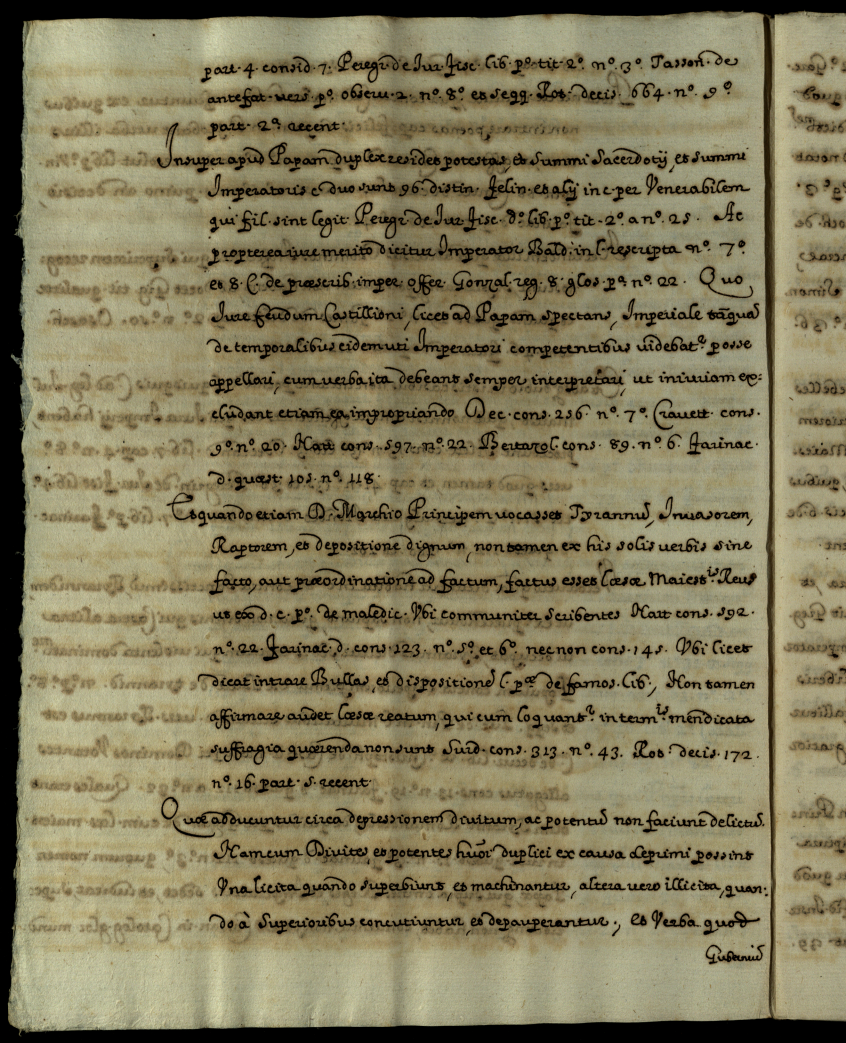 part. 4. consid. 7. Peregr. de Iur. Fisc. lib. pº. tit. 2º. nº. 3º. Tasson. de
antefat. vers. pº. observ. 2. nº. 8º. et seqq. Rot. decis. 664. nº. 9º.
part. 2ª. recent.
Insuper apud Papam duplex residet potestas, et Summi Sacerdotij, et summi
Imperatoris c. duo sunt 96. distin. Felin. et alij in c. per Venerabilem
qui fil. sint legit. Peregr. de Iur. Fisc. dº. lib. pº. tit. 2º. a nº. 25. Ac
propterea iure merito dicitur Imperator Bald. in l. rescripta nº. 7º.
et 8. C. de præscrib. imper. offer. Gonzal. reg. 8. glos. pª. nº. 22. Quo
Iure feudum Castillioni, licet ad Papam spectans, Imperiale tãquã
de temporalibus eidem uti Imperatori competentibus videbat.r posse
appellari, cum verba ita debeant semper interpretari, ut iniuriam ex=
cludant etiam ea impropriando Dec. cons. 256. nº. 7º. Cravett. cons.
9º. nº. 20. Natt. cons. 597. nº. 22. Bertazol. cons. 89. nº. 6. Farinac.
d. quæst. 105. nº. 118.
Et quando etiam D. Marchio Principem vocasset Tyrannũ, Invasorem,
Raptorem, et depositione dignum, non tamen ex his solis verbis sine
facto, aut præordinatione ad factum, factus esset læsæ Maiest.is Reus
ut ex d. c. pº. de maledic. Vbi communiter scribentes Natt. cons. 592.
nº. 22. Farinac. d. cons. 123. nº. 5º. et 6º. nec non cons. 145. Vbi licet
dicat intrare Bullas, et dispositionẽ l. pæ. de famos. lib., Non tamen
affirmare audet læsæ reatum, qui cum loquant.r in term.is mendicata
suffragia quærenda non sunt Surd. cons. 313. nº. 43. Rot. decis. 172.
nº. 16. part. 5. recent.
Quæ adducuntur circa depressionem divitum, ac potentũ non faciunt delictũ.
Nam cum Divites, et potentes duplici ex causa deprimi possint
Vna licita quando superbiunt, et machinantur, altera vero illicita, quan=
do à Superioribus concutiuntur, et depauperantur., Et Verba quod